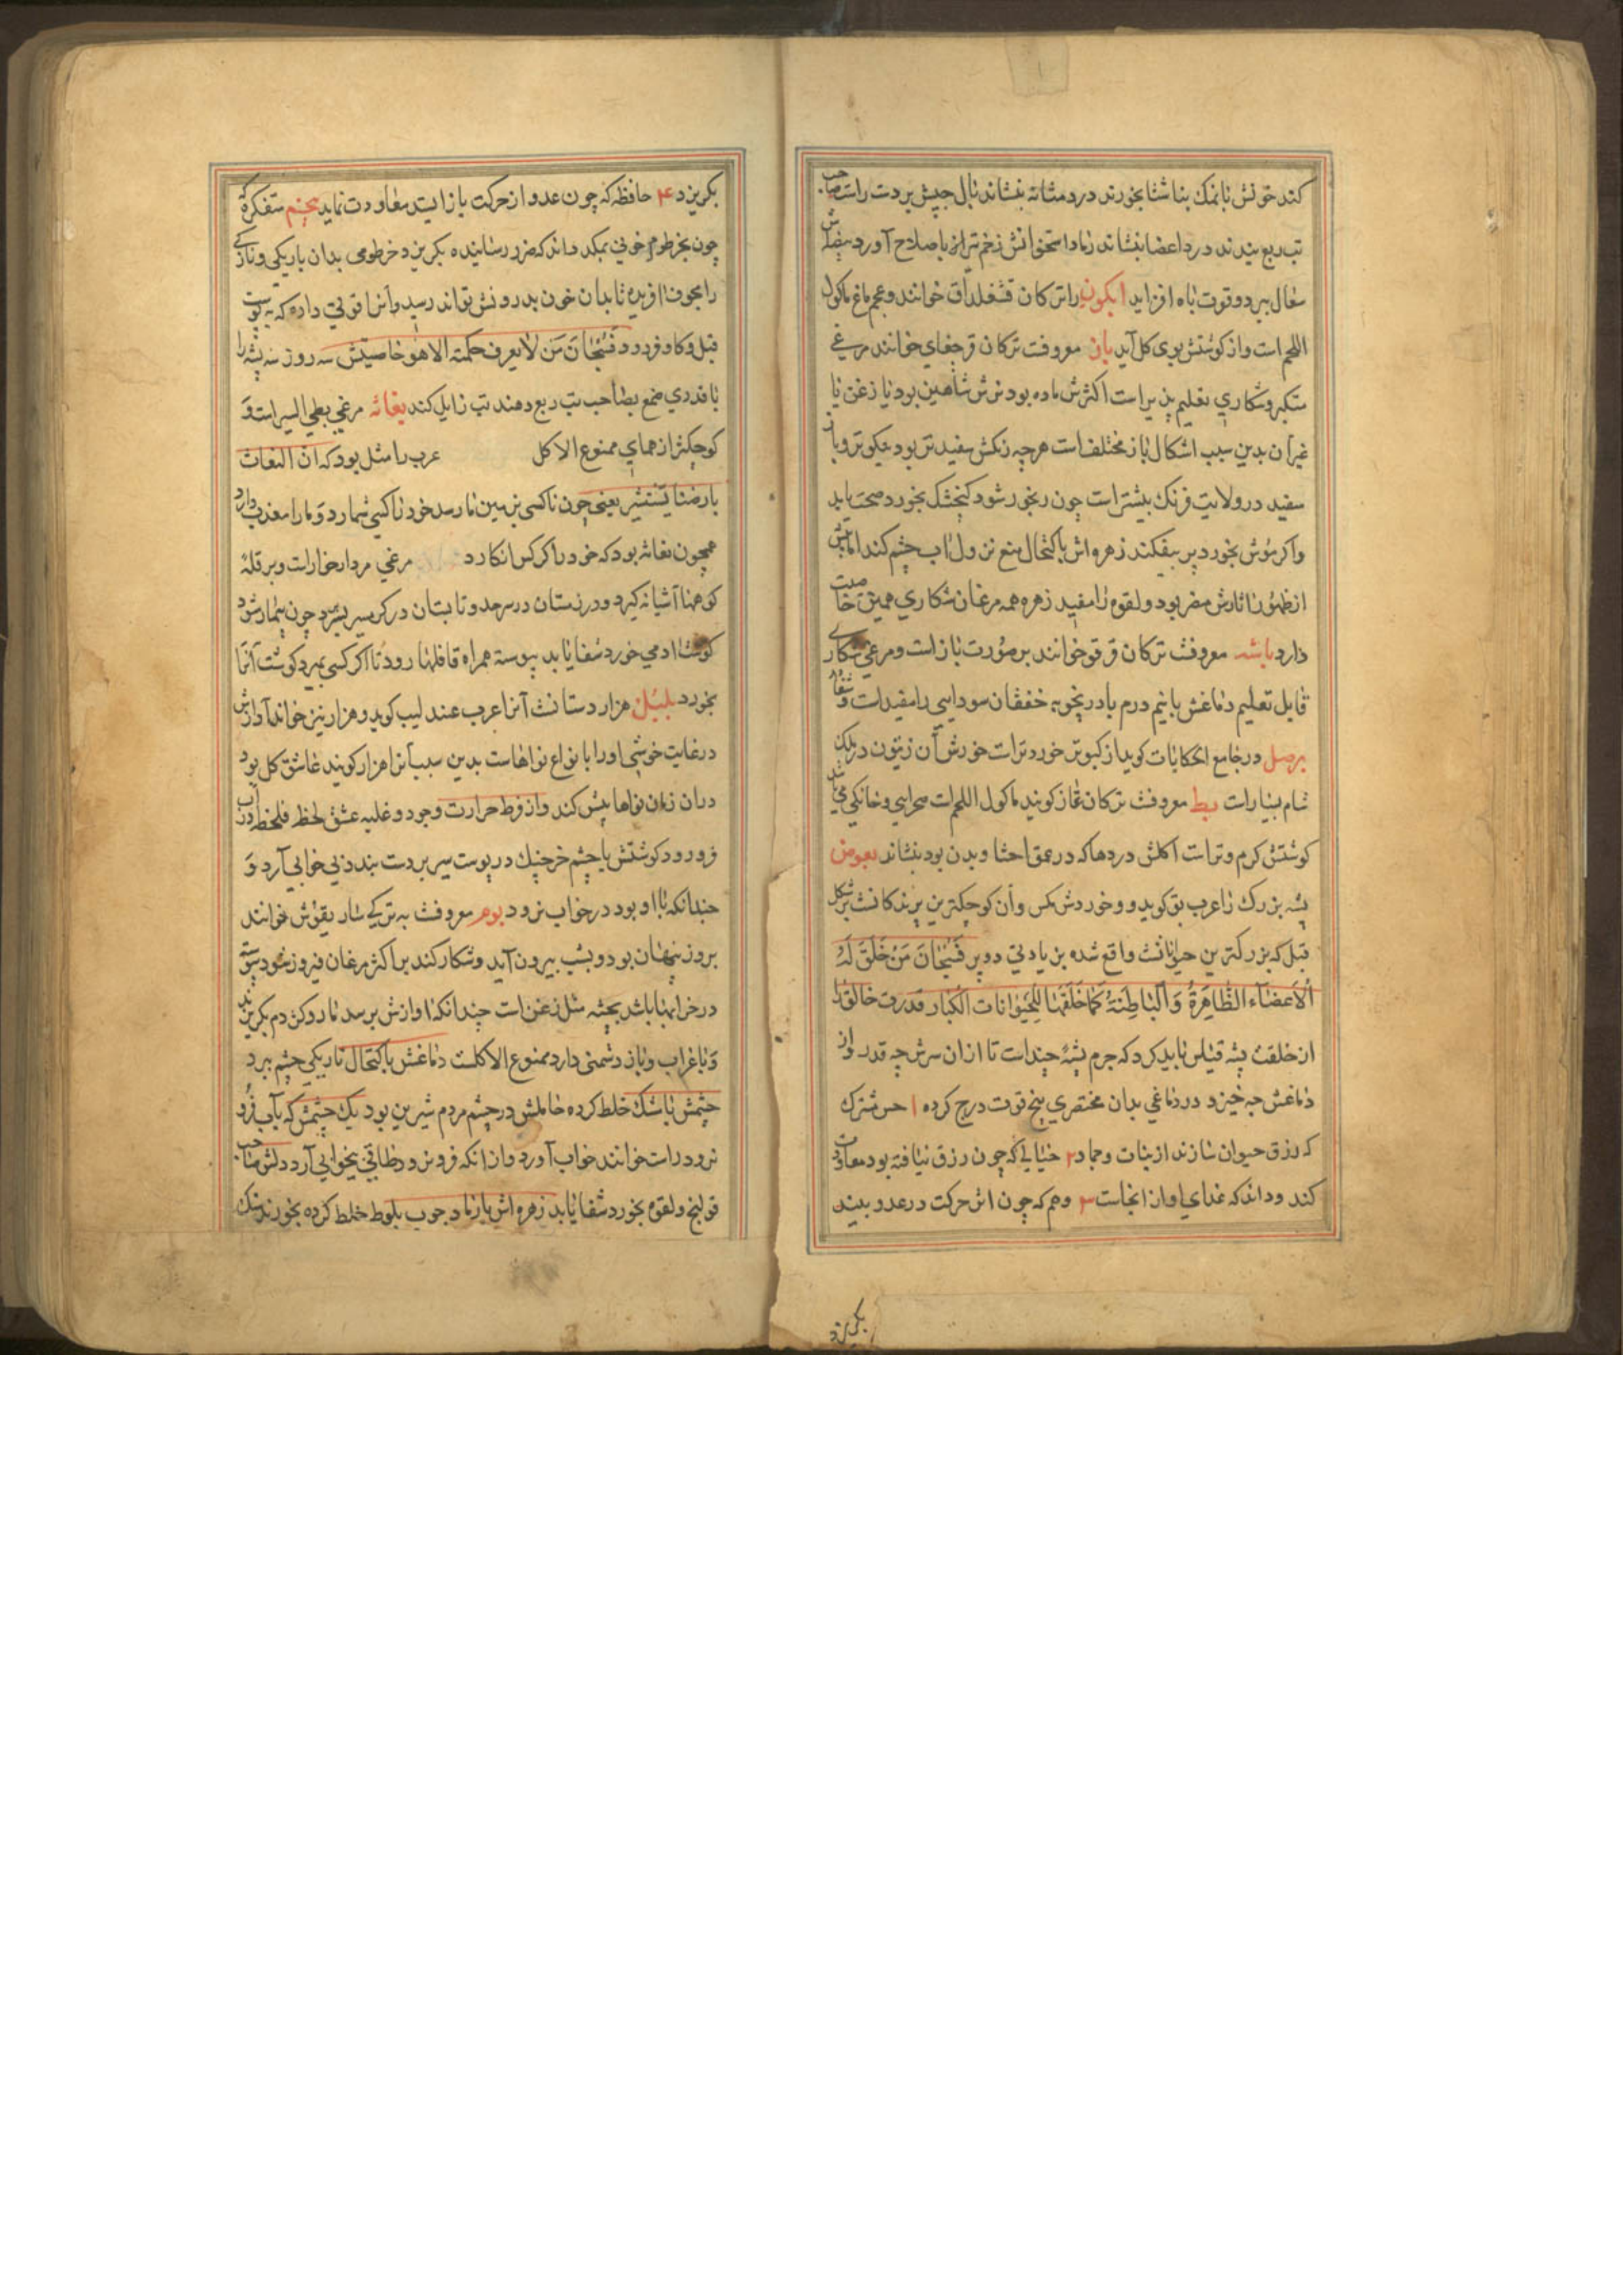 کند خونش با نمک بناشتا بخورند درد مثانه بنشاند بال چپش بر دست راست صاحب
تب ربع بندند درد اعضا بنشاند رماد استخوانش زخم تر را باصلاح آورد بیضه‌اش
سعال ببرد و قوت باه افزاید ایکون را ترکان قشغلداق خوانند و عجم ماغ ماکول
اللحم است و از کوشتش بوی کل آید باز معروفست ترکان قرجغای خوانند مرغی
متکبر و شکاری تعلیم پذیر است اکثرش ماده بود نرش شاهین بود یا زغن یا
غیر آن بدین سبب اشکال باز مختلف است هرچه رنکش سفیدتر بود نیکوتر و باز
سفید در ولایت فرنک بیشتر است چون رنجور شود کنجشک بخورد صحت یابد
و اکر موش بخورد پر بیفکند زهره‌اش باکتحال منع نزول آب چشم کند اما پیش
از ظهور آثارش مضر بود و لقوه را مفید زهره همه مرغان شکاری همین خاصیت
دارد باشه معروفست ترکان قرقو خوانند بر صورت باز است و مرغی شکاری
قابل تعلیم دماغش با نیم درم بادرنجویه خفقان سودایی را مفید است و شفا
برصل در جامع الحکایات کوید از کبوتر خوردتر است خورش آن زیتون در ملک
شام بسیار است بط معروفست ترکان قاز کویند ماکول اللحم است صحرایی و خانکی می باشد
کوشتش کرم و تر است اکلش دردها که در عمق احشا و بدن بود بنشاند بعوض
پشه بزرک را عرب بق کوید و خوردش مکس و آن کوچکترین پرندکانست بر شکل
فیل که بزرکترین حیوانانست واقع شده بزیادتی دو پر فسبحان من خلق له
الاعضاء الظاهرة والباطنة کما خلقها للحیوانات الکبار قدرت خالق را
از خلقت پشه قیاس باید کرد که جرم پشه چند است تا از ان سرش چه قدر و از
دماغش چه خیزد در دماغی بدان مختصری پنج قوت درج کرده ۱ حس مشترک
که رزق حیوان سازند از نبات و جماد ۲ خیالی که چون رزق نیافته بود معاودت
کند و داند که غذای او از انجاست ۳ وهم که چون اثر حرکت در عدو بیند
بکریزد
بکریزد ۴ حافظه که چون عدو از حرکت باز ایستد معاودت نماید پنجم متفکره که
چون بخرطوم خونی بمکد داند که ضرر رساینده بکریزد خرطومی بدان باریکی و نازکی
را مجوف افریده تا بدان خون بدرونش تواند رسید و آنرا قوتی داده که به پوست
فیل و کاو فرورود فسبحان من لا یعرف حکمته الا هو خاصیتش سه روز سه پشه را
با قدری صمغ بصاحب تب ربع دهند تب زایل کند بغاثه مرغی بطی السیر است و
کوچکتر از همای ممنوع الاکل عرب را مثل بود که ان البغاث
بارضنا یستنسر یعنی چون ناکسی بزمین ما رسد خود را کسی شمارد و ما را معذب دارد
همچون بغاثه بود که خود را کرکس انکارد مرغی مردارخوار است و بر قله
کوهها آشیانه کیرد و در زمستان در سرحد و تابستان در کرمسیر بسر برد چون بیمار شود
کوشت ادمی خورد شفا یابد پیوسته همراه قافلها رود تا اکر کسی بمیرد کوشت آنرا
بخورد بلبل هزاردستانست آنرا عرب عندلیب کوید و هزار نیز خوانند آوازش
در غایت خوشی او را بانواع نواهاست بدین سبب آنرا هزار کویند عاشق کل بود
در ان زمان نواها بیش کند و از فرط حرارت وجود و غلبه عشق لحظه فلحظه در آب
فرورود کوشتش با چشم خرچنک در پوست سیر بر دست بندد بی خوابی آرد و
چندانکه با او بود در خواب نرود بوم معروفست به ترکی ساریقوش خوانند
بروز پنهان بود و بشب بیرون آید و شکار کند بر اکثر مرغان فیروز شود پیوسته
در خرابها باشد بجثه مثل زغن است چندانکه اوازش برسد مار و کزدم بکریزند
و با غراب و باز دشمنی دارد ممنوع الاکلست دماغش باکتحال تاریکی چشم ببرد
چشمش با مشک خلط کرده حاملش در چشم مردم شیرین بود یک چشمش که بآب فرو
نرود راست خوانند خواب آورد و از انکه فرو رود بی‌خوابی آرد دلش صاحب
قولنج و لقوه بخورد شفا یابد زهره‌اش با رماد چوب بلوط خلط کرده بخورند سنک